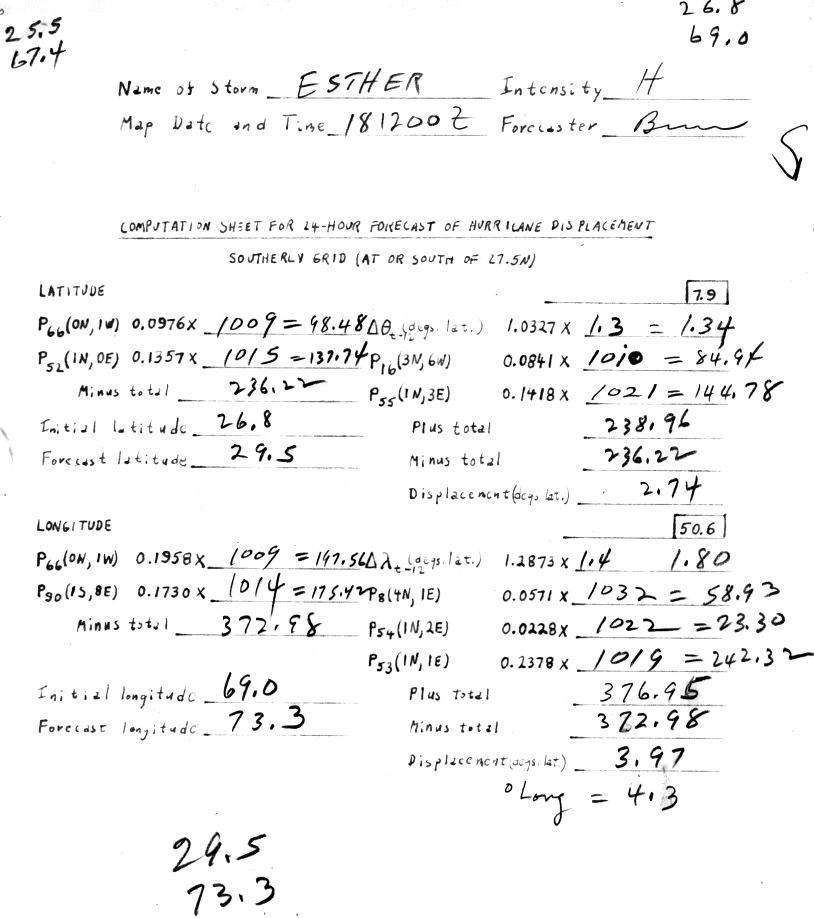 25.5
67.4
26.8
69.0
Name of Storm ESTHER Intensity H
Map Date and Time 181200Z Forecaster
COMPUTATION SHEET FOR 24-HOUR FORECAST OF HURRICANE DISPLACEMENT
SOUTHERLY GRID (AT OR SOUTH OF 27.5N)
LATITUDE 7.9
P66(0N,1W) 0.0976X 1009 = 98.48 Δθt-12(degs. lat.) 1.0327 X 1.3 = 1.34
P52(1N,0E) 0.1357X 1015 = 137.74 P16(3N,6W) 0.0841 X 1010 = 84.94
Minus total 236.22 P55(1N,3E) 0.1418 X 1021 = 144.78
Initial latitude 26.8 Plus total 238.96
Forecast latitude 29.5 Minus total 236.22
Displacement (degs. lat.) 2.74
LONGITUDE 50.6
P66(0N,1W) 0.1958X 1009 = 197.56 Δλt-12(degs. lat.) 1.2873 X 1.4 1.80
P90(1S,8E) 0.1730 X 1014 = 175.42 P8(4N,1E) 0.0571 X 1032 = 58.93
Minus total 372.98 P54(1N,2E) 0.0228X 1022 = 23.30
P53(1N,1E) 0.2378 X 1019 = 242.32
Initial longitude 69.0 Plus total 376.95
Forecast longitude 73.3 Minus total 372.98
Displacement (degs. lat.) 3.97
° Long = 4.3
29.5
73.3